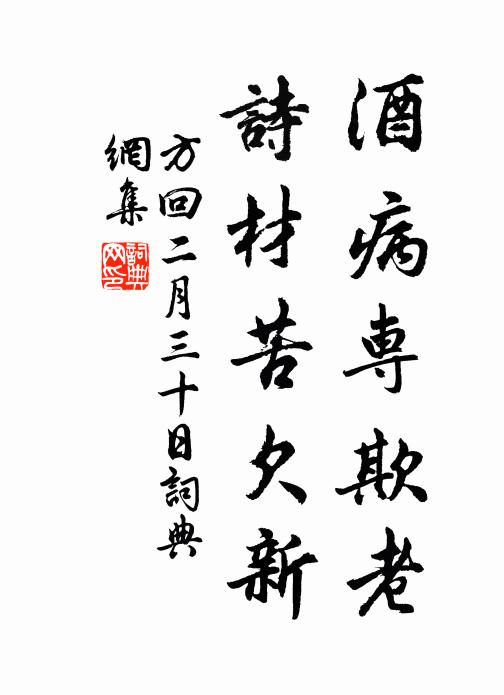 酒病専欺老
詩材苦欠新
方回二月三十日詞典
網集
詞典
网印